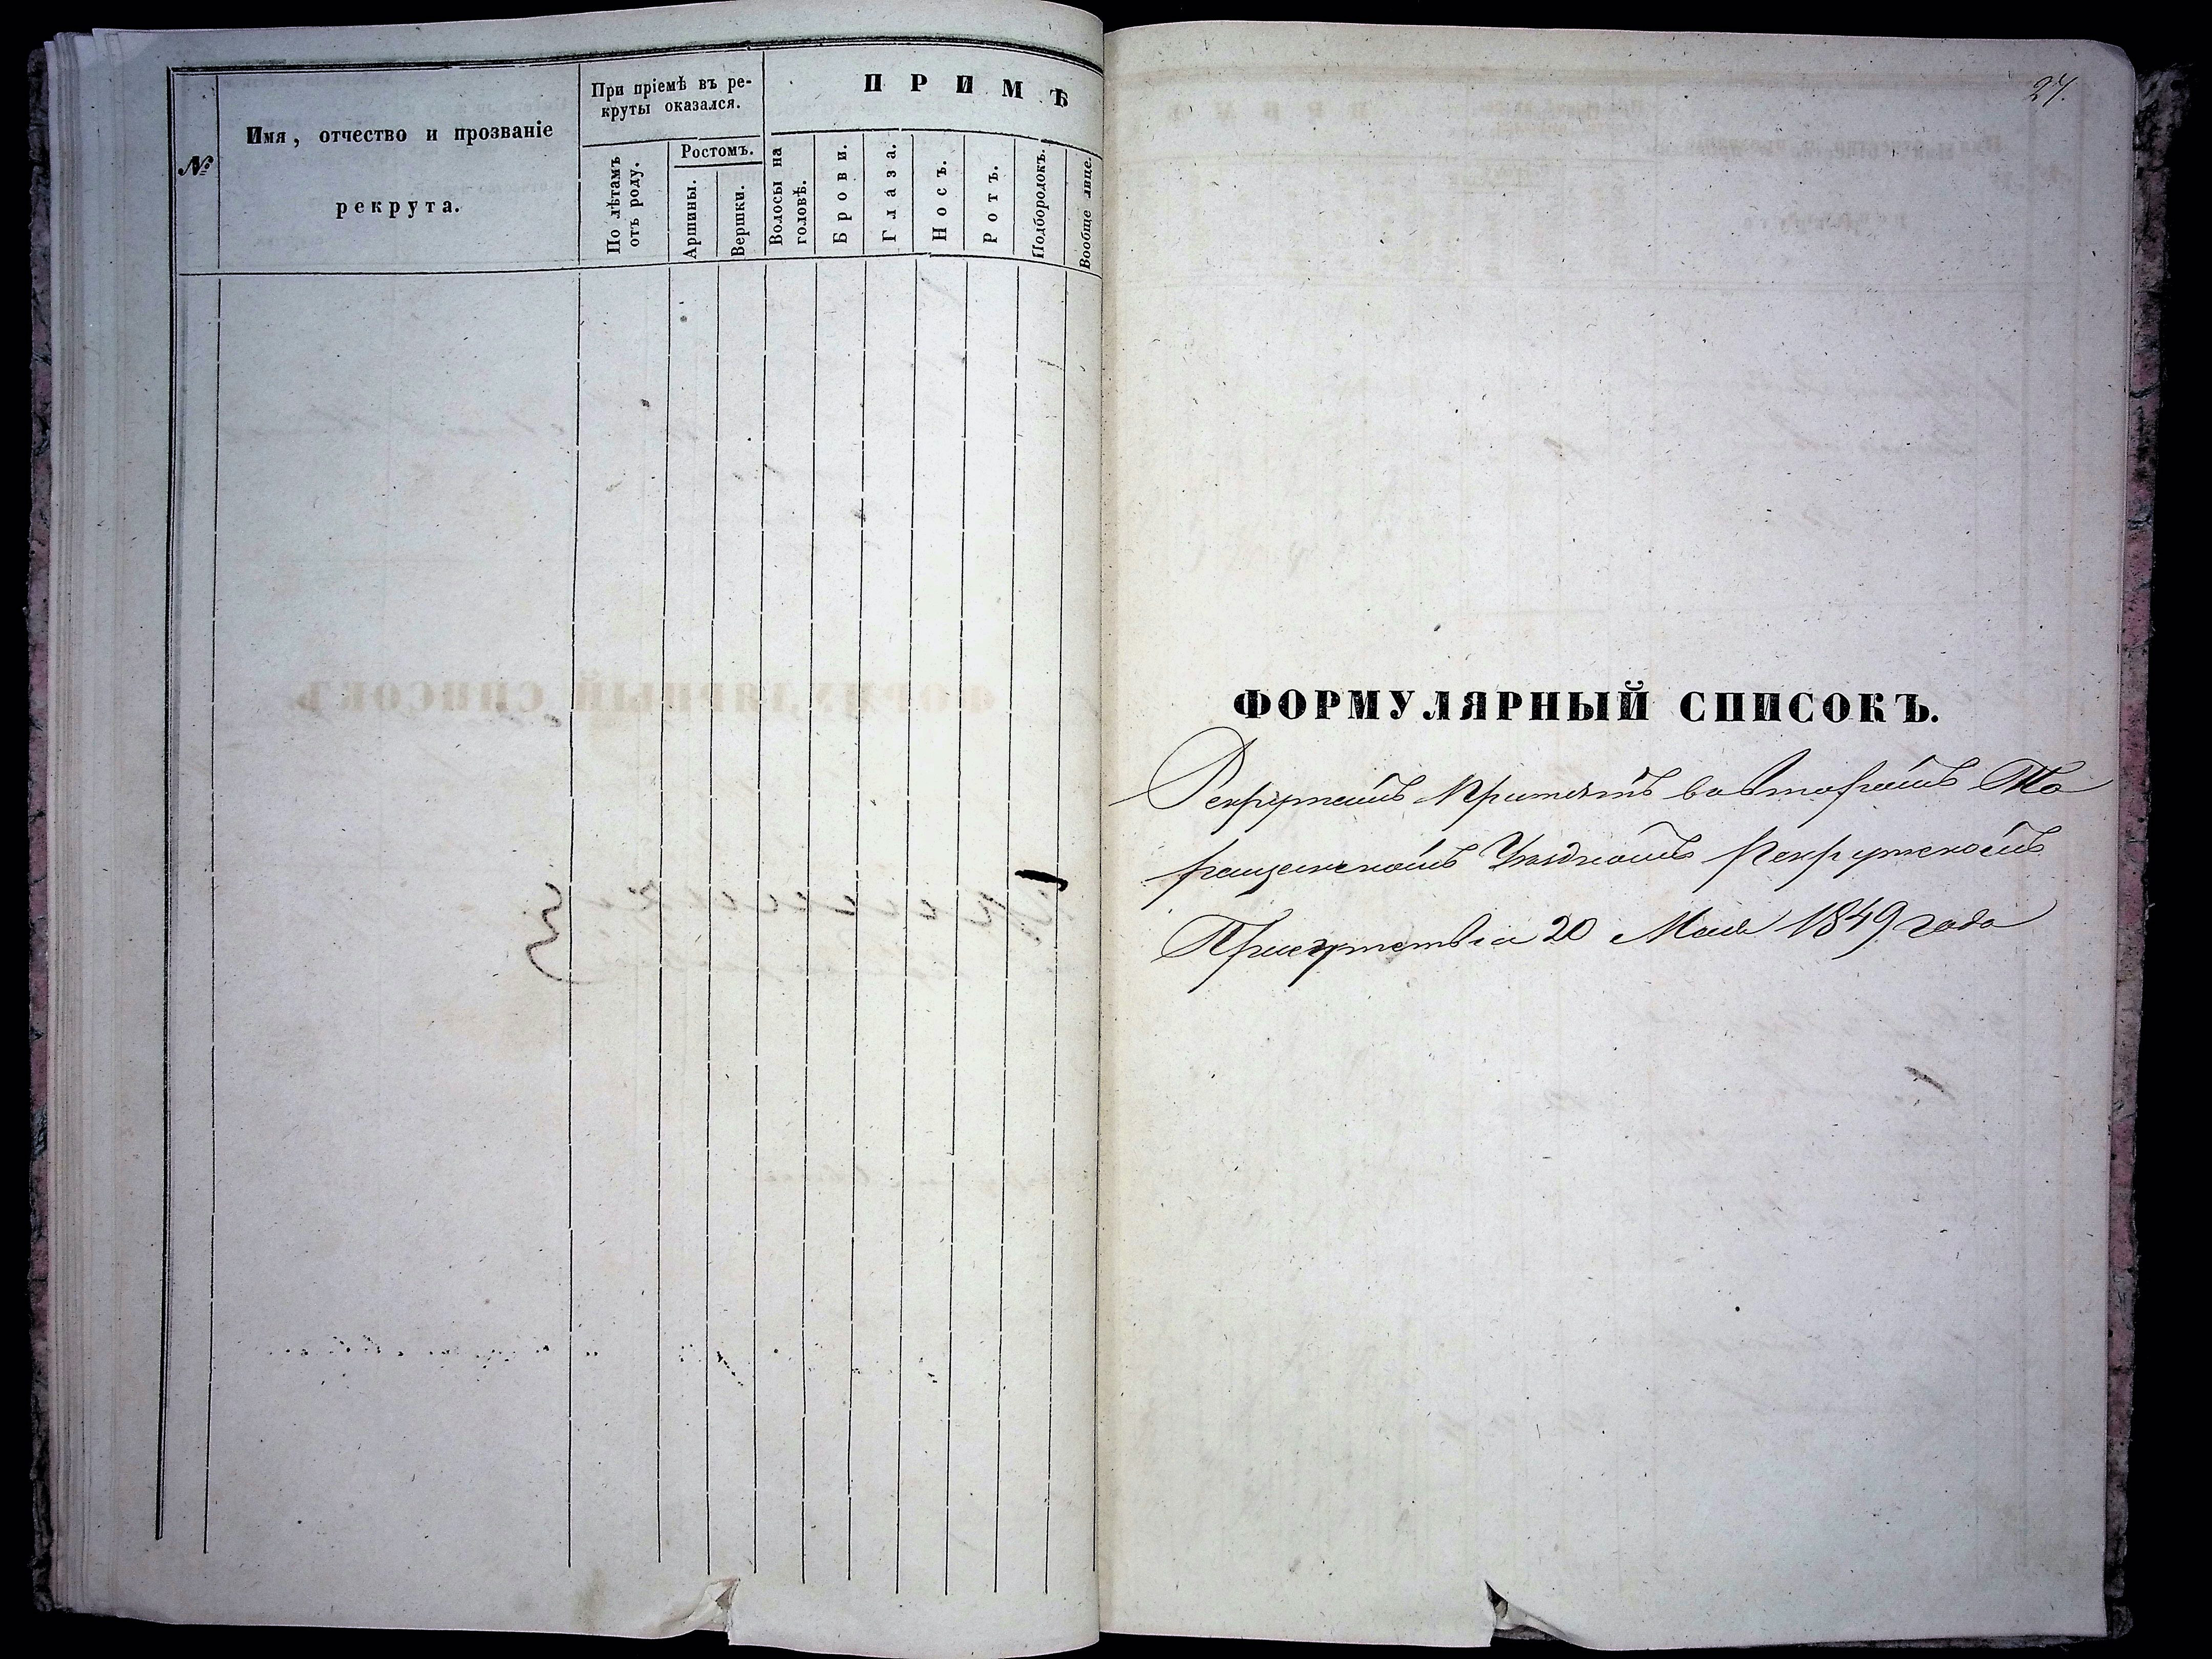 №
Имя, отчество и прозваніе
рекрута.
При пріемѣ въ ре-
круты оказался.
По лѣтамъ
отъ роду.
Ростомъ.
Аршины.
Вершки.
ПРИМѢ
Волосы на
головѣ.
Брови.
Глаза.
Носъ.
Ротъ.
Подбородокъ.
Вообще лице.
27.
ФОРМУЛЯРНЫЙ СПИСОКЪ.
Рекрутамъ принятымъ во Второмъ Та
ращанскомъ Уѣздномъ Рекрутскомъ
Присутствіи 20 Мая 1849 года